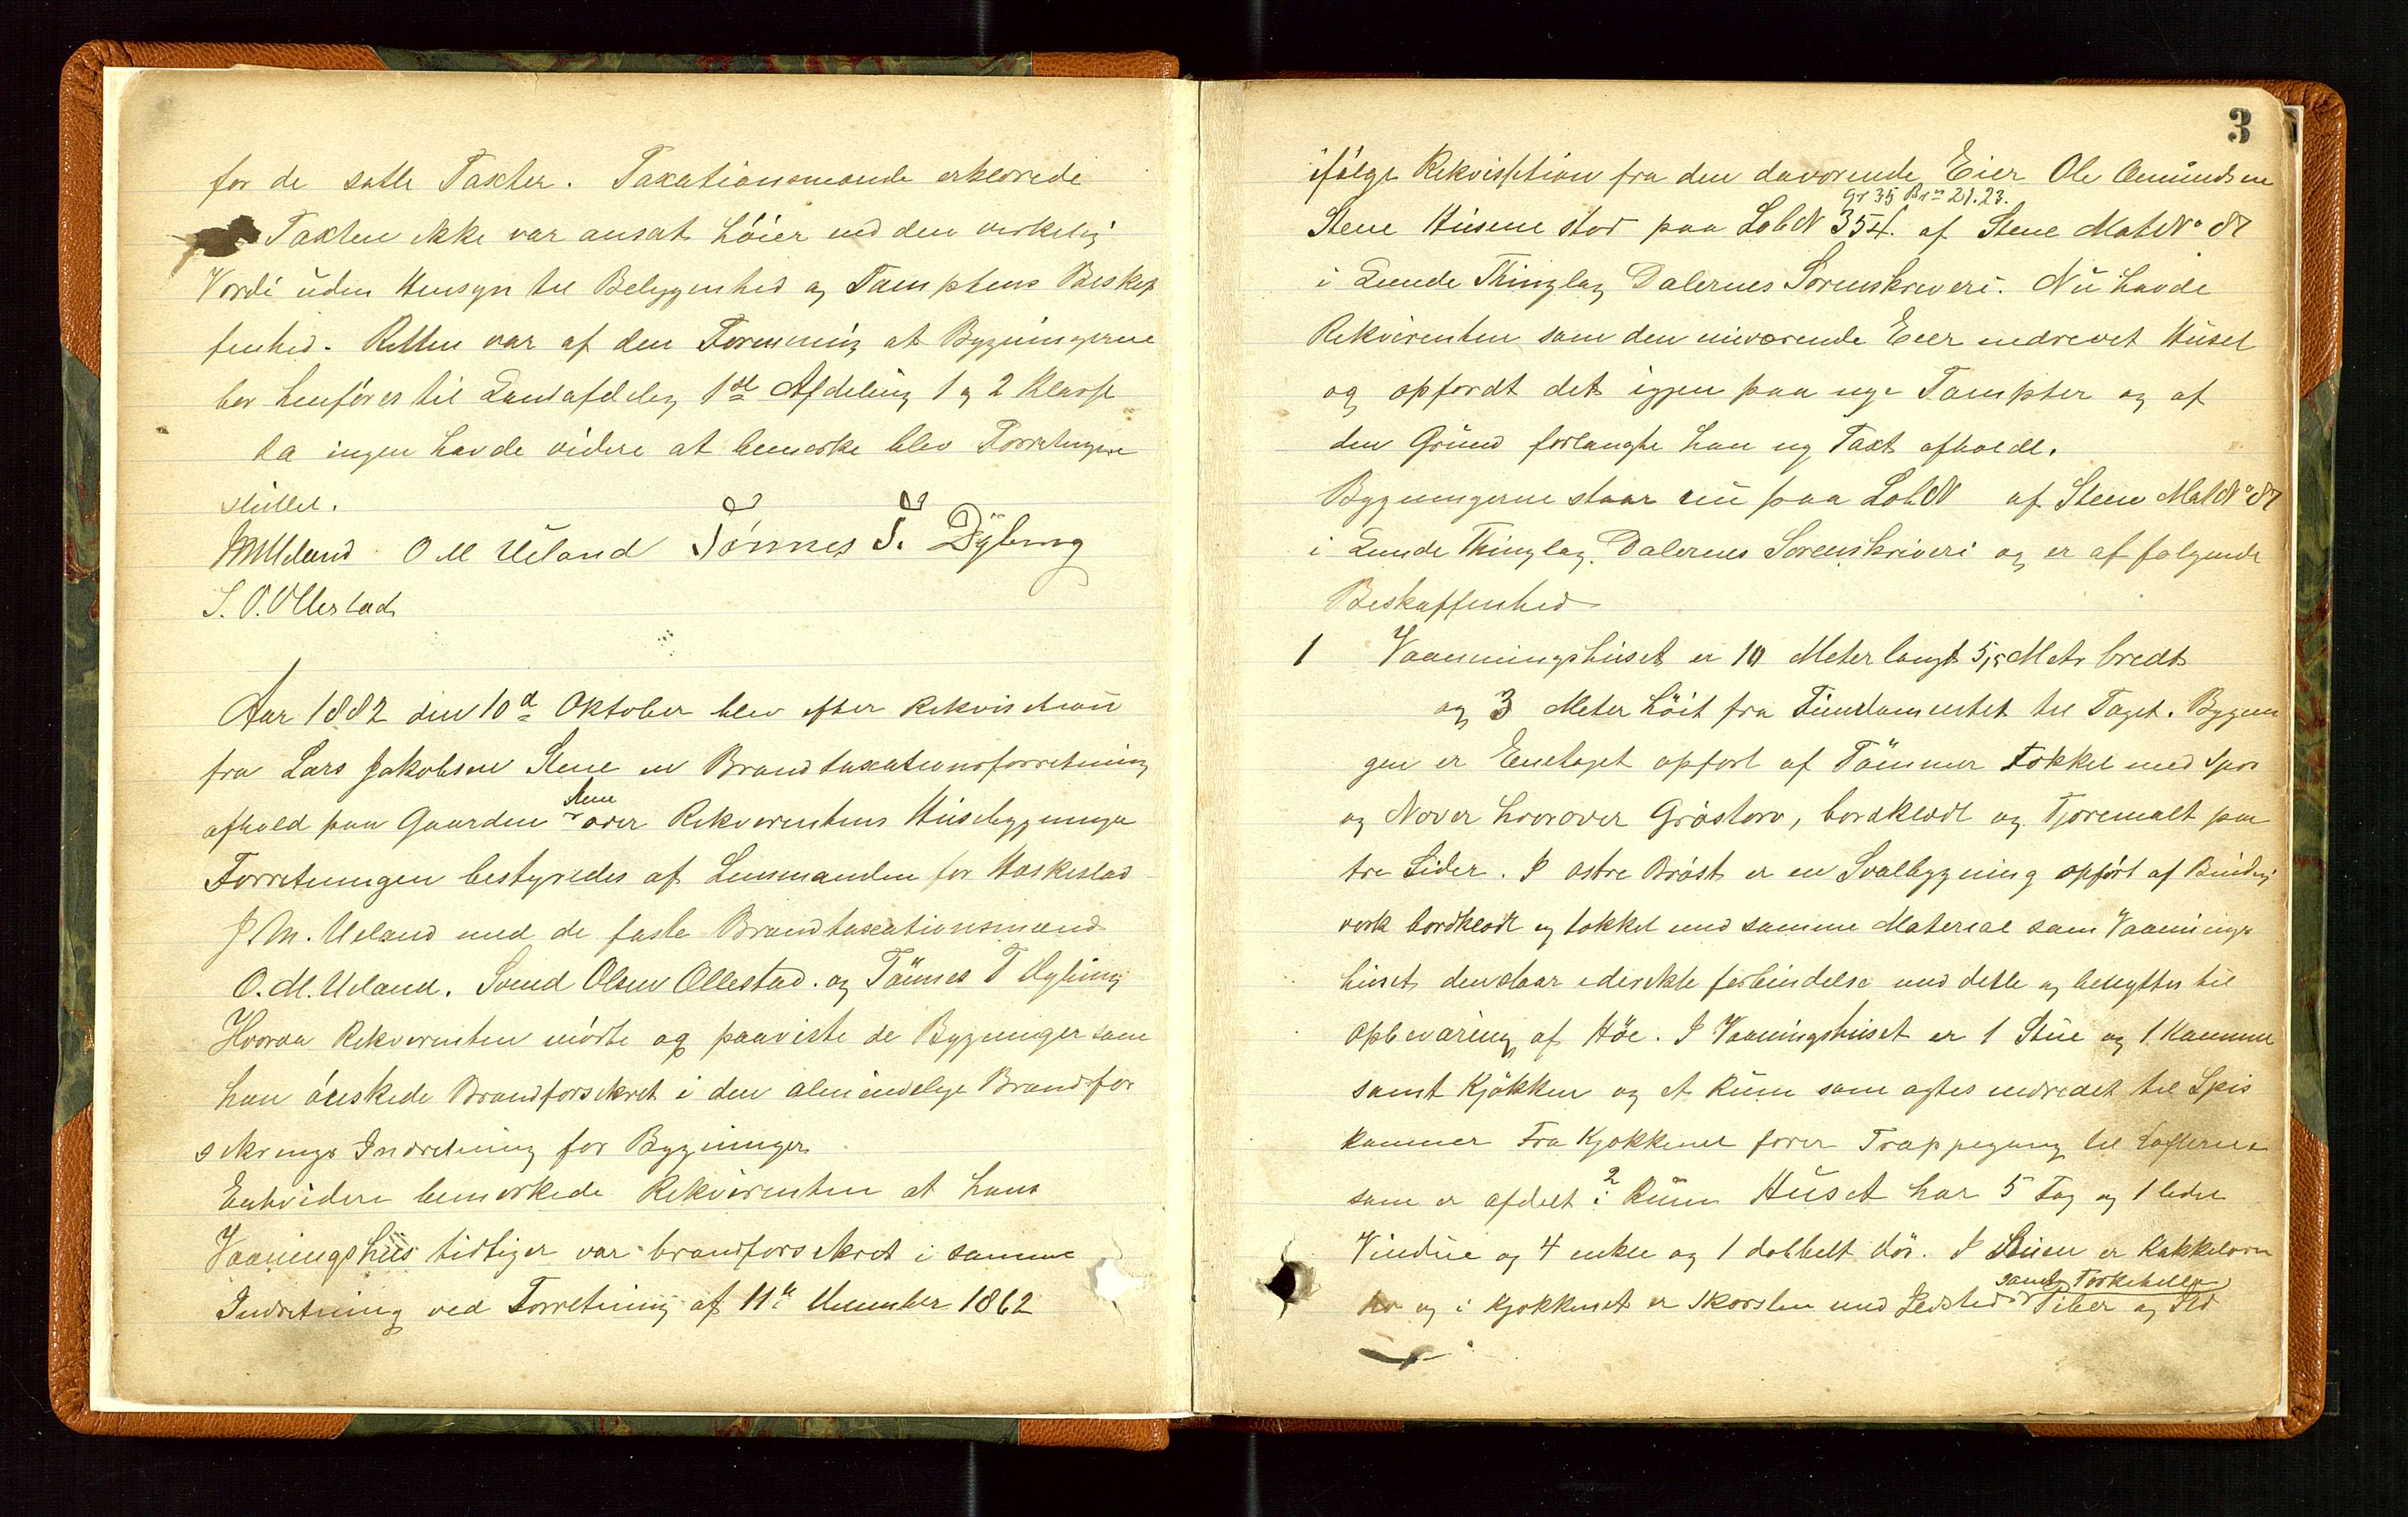 for de satte Taxter. Taxationsmænde erklærede
Taxten ikke var ansat höier end den virkelig
Værdi uden Hensyn til Beliggenhed og Tomptens Beskaf
fenhed. Retten var af den Formening at Bygningerne
bör henföres til Landafdeling 1ste Afdeling 1 og 2 Klasse
da ingen havde videre at bemærke blev Forretningen
sluttet.
JMUeland O M Ueland Tönnes T. Dybing
S. O. Ollestad
Aar 1882 den 10d Oktober blev efter Rekvisition
fra Lars Jakobsen Stene en Brandtaxationsforretning
afhold paa Gaarden Stene over Rekvirentens Husebygninger
Forretningen bestyredes af Lensmanden for Heskestad
J. M. Ueland med de faste Brandtaxationsmænd
O. M. Ueland. Svend Olsen Ollestad. og Tönnes T Dybing
Hvoraa Rekvirenten mödte og paaviste de Bygninger som
han önskede Brandforsikret i den almindelige Brandfor
sikrings Indretning for Bygninger
Enhvidere bemærkede Rekvirenten at hans
Vaaningshus tidliger var brandforsikret i samme
Indretning ved Forretning af 11te 1862
3
ifölge Rekvisition fra den daværende Eier Ole Amundsen
Gr 35 Brn 21.23.
Stene Husene stod paa LobN 354. af Stene MatrNo 87
i Lunde Thinglag Dalernes Sorenskriveri. Nu havde
Rekvirenten som den nuværende Eier nedrevet Huset
og opfördt det igjen paa nye Tompter og af
den Grund forlangte han ny Taxt afholdt.
Bygningerne staar nu paa LobN af Stene MatNo 87
i Lunde Thinglag. Dalernes Sorenskriveri og er af fölgende
Beskaffenhed
1 Vaanningshuset er 10 Meter langt 5,5 Metr bredt
og 3 Meter höit fra Fundamentet til Taget. Bygnin
gen er Enetaget opfört af Tömmer tækket med Spon
og Never hvorover Græstorv, bordklædt og Tjæremalt paa
tre Sider. I östre Bröst er en Svalbygning opfört af Binding
verk bordklædt og tækket med samme Material som Vaanings
huset den staar i direkte forbindelse med dette og benyttes til
Opbevaring af Höe. I Vaaningshuset er 1 Stue og 1 Kammer
samt Kjökken og et Rum som agtes indredet til Spis
kammer Fra Kjökkenet förer Trappegang til Lofterne
som er afdelt i 2 Rum Huset har 5 Fag og 1 ledet
Vindue og 4 enkle og 1 dobbelt dör. I Stuen er Kakkelovn
samt Törkehelle
og i Kjökkenet er Skorsten med Ildsted Piber og Ild